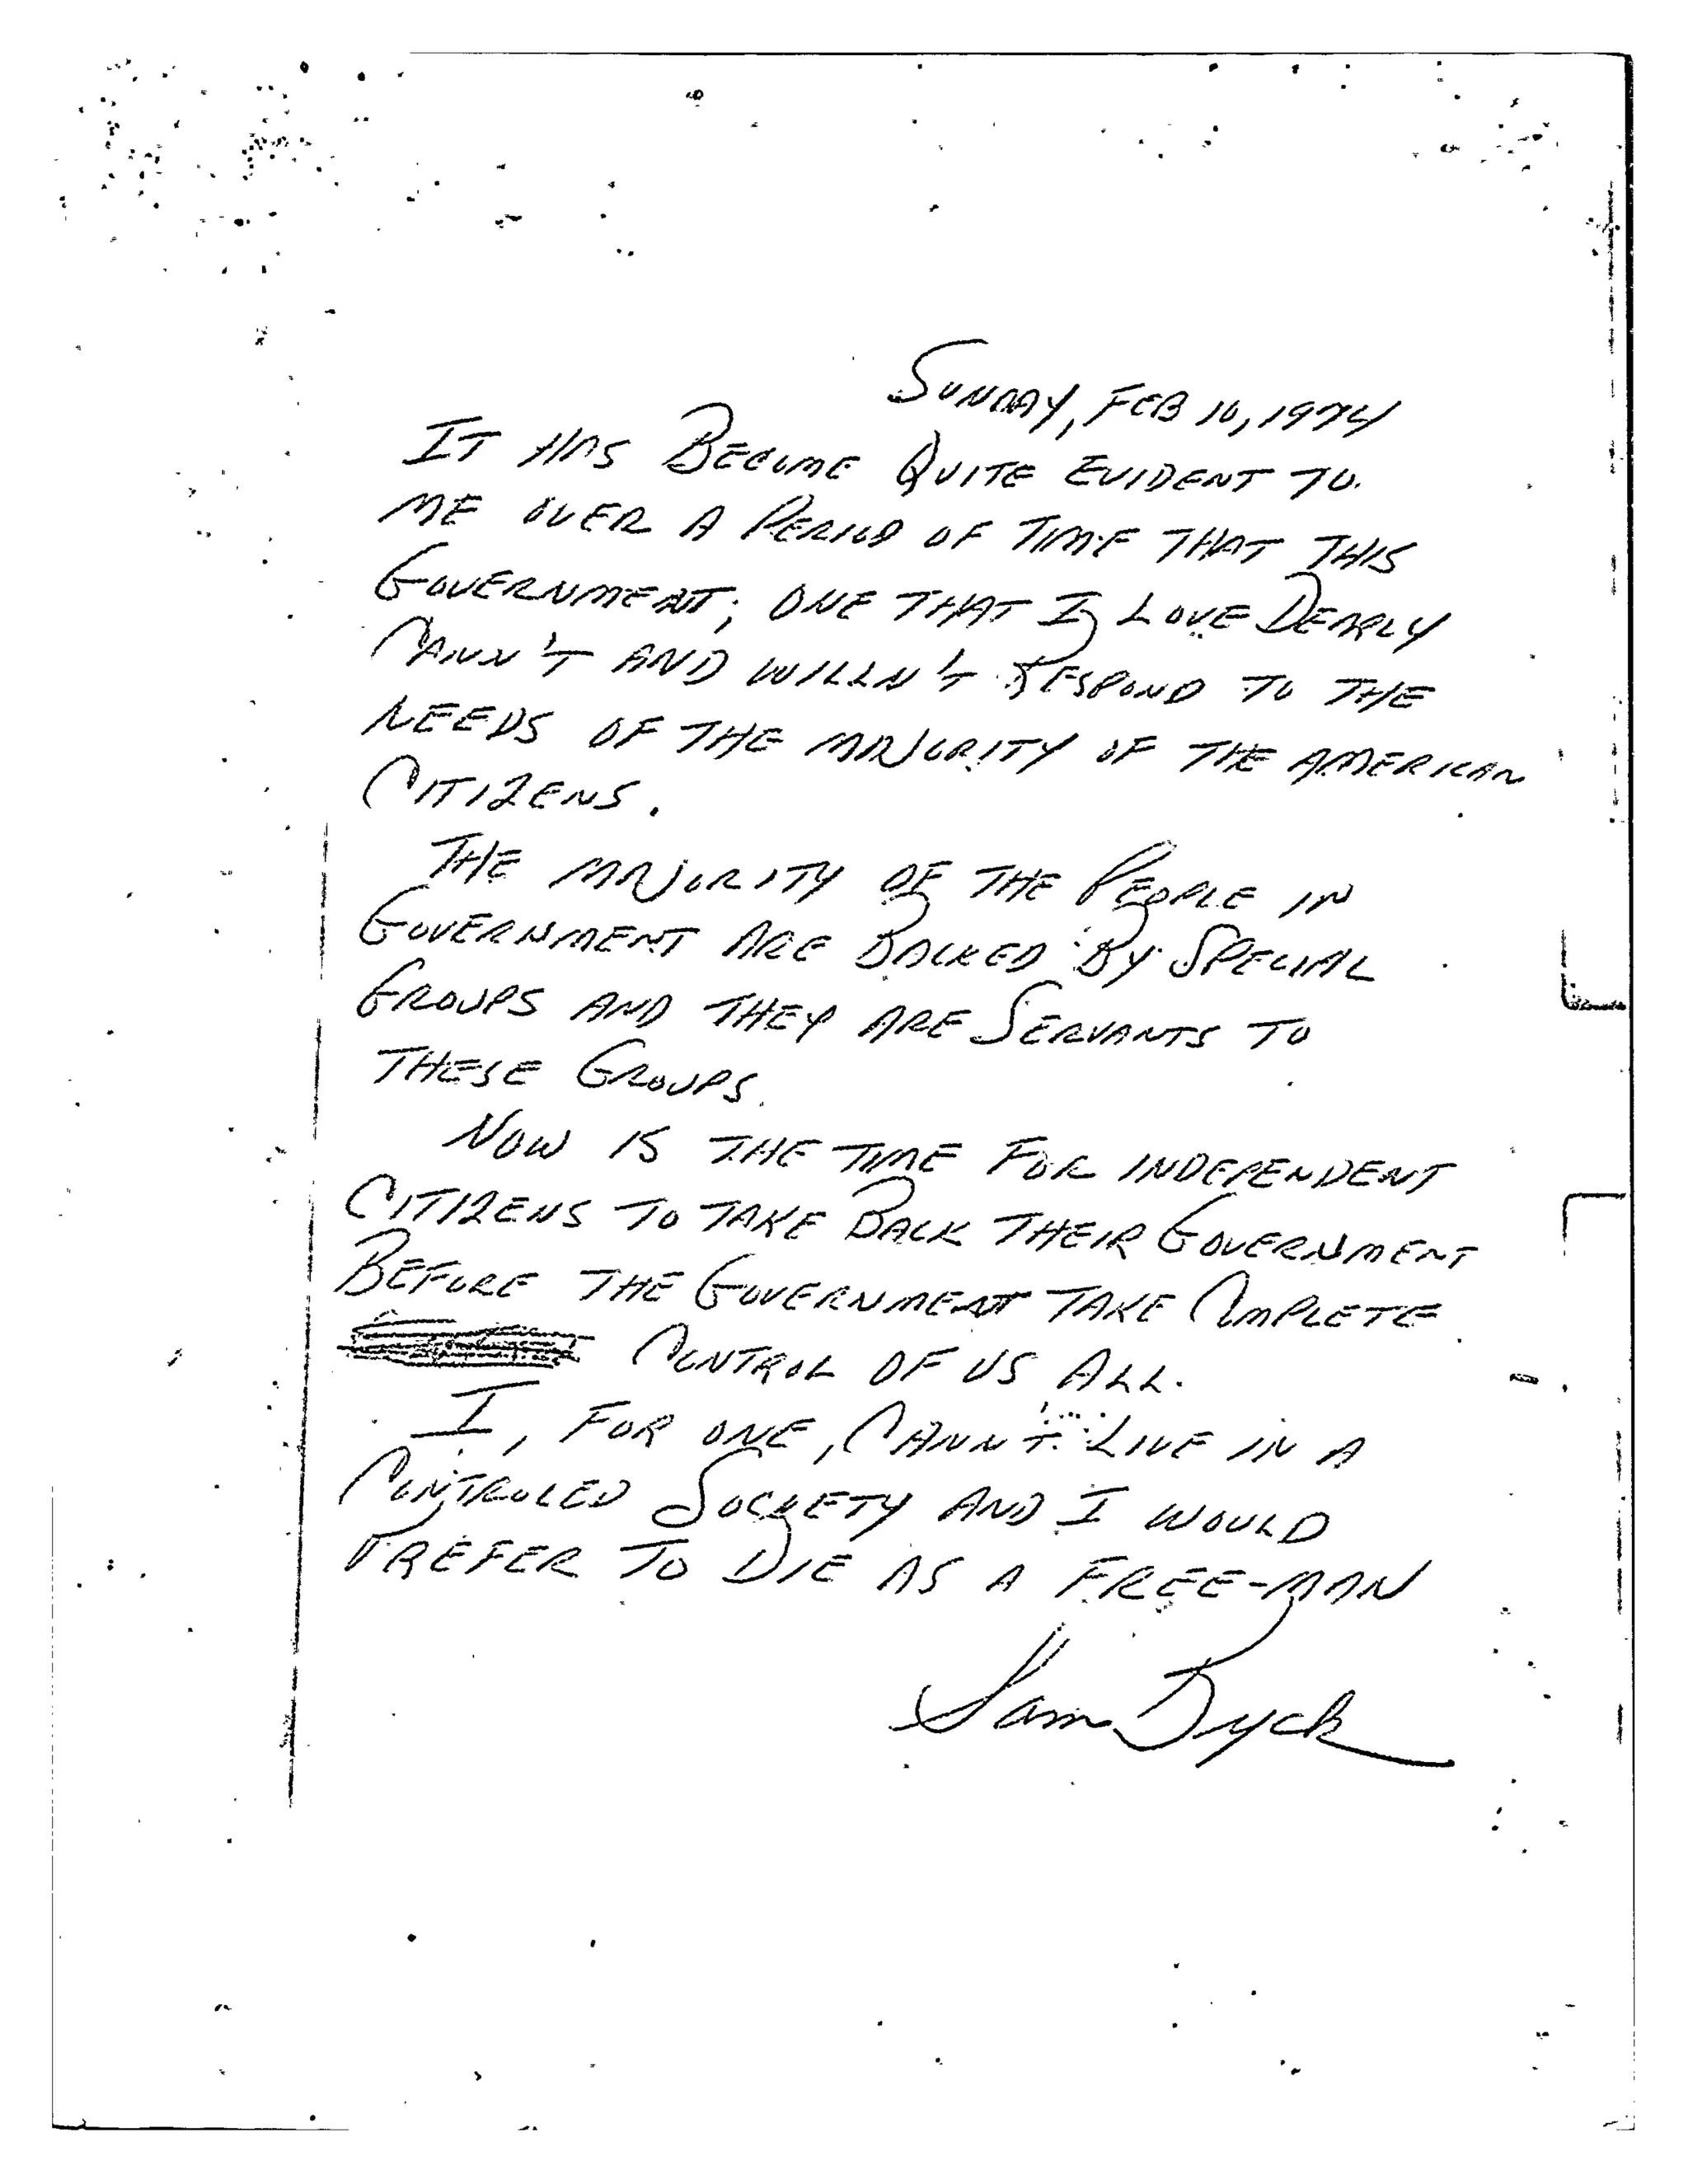 Sunday, Feb 10, 1974
It has Become Quite Evident to
me over a Period of Time that this
Government; one that I Love Dearly
Cann't and willn't Respond to the
needs of the majority of the American
Citizens.
The majority of the People in
Government Are Backed By Special
Groups and they are Servants to
these Groups.
Now is the time for independent
Citizens to take Back their Government
Before the Government take Complete
Control of us All.
I, for one, Cann't Live in a
Controled Society and I would
Prefer to Die as a free-man
Sam Byck